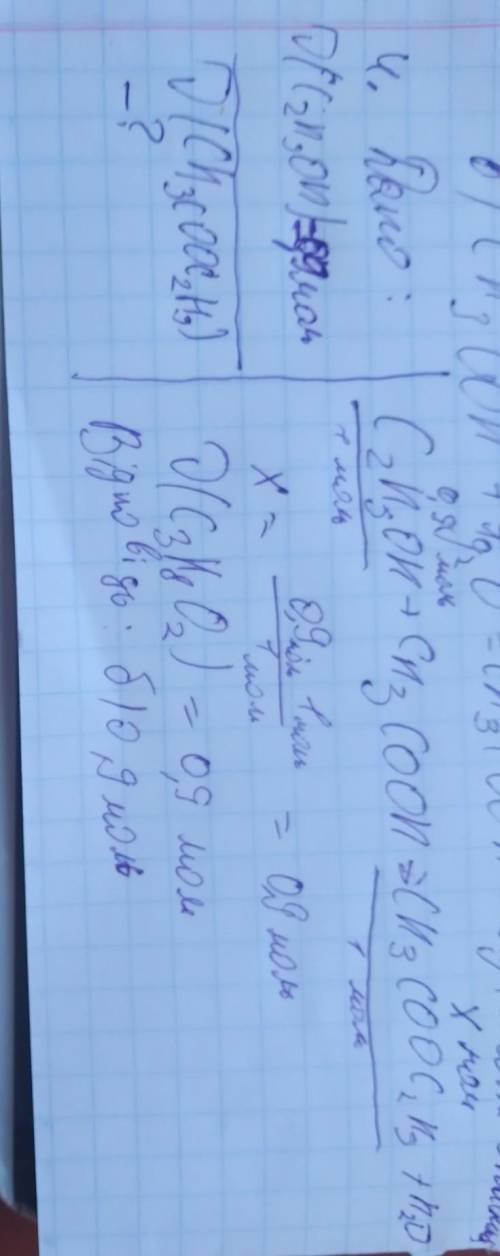 4. Дано:
ν(C₂H₅OH)=0,9моль
ν(CH₃COOC₂H₅)
-?
0,9 моль
X моль
C₂H₅OH + CH₃COOH ⇒ CH₃COOC₂H₅ + H₂O
1 моль
1 моль
X = 0,9моль 1 моль / 1 моль = 0,9 моль
ν(C₃H₈O₂) = 0,9 моль
Відповідь: б) 0,9 моль